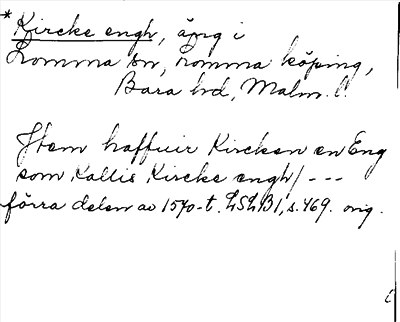 * Kircke engh, äng i
Lomma sn, Lomma köping,
Bara hd, Malm. l.
Item haffuir Kircken en Eng
som kallis Kircke engh/ ---
förra delen av 1570-t. LSLB1, s. 469. orig.